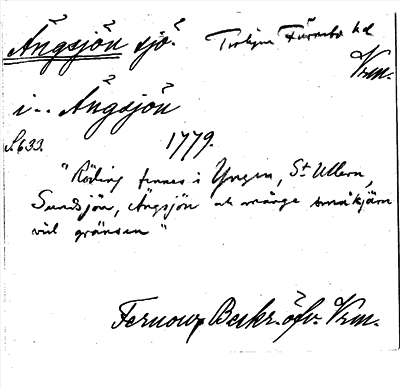 Ängsjön sjö. Färnebo hd
Vrm.
i.. Ängsjön
S. 633. 1779.
"Röding finnes i Yngen, St Ullern,
Sundsjön, Ängsjön ok många småkjärn
vid gränsen"
Fernow, Beskr. öfv. Vrm.